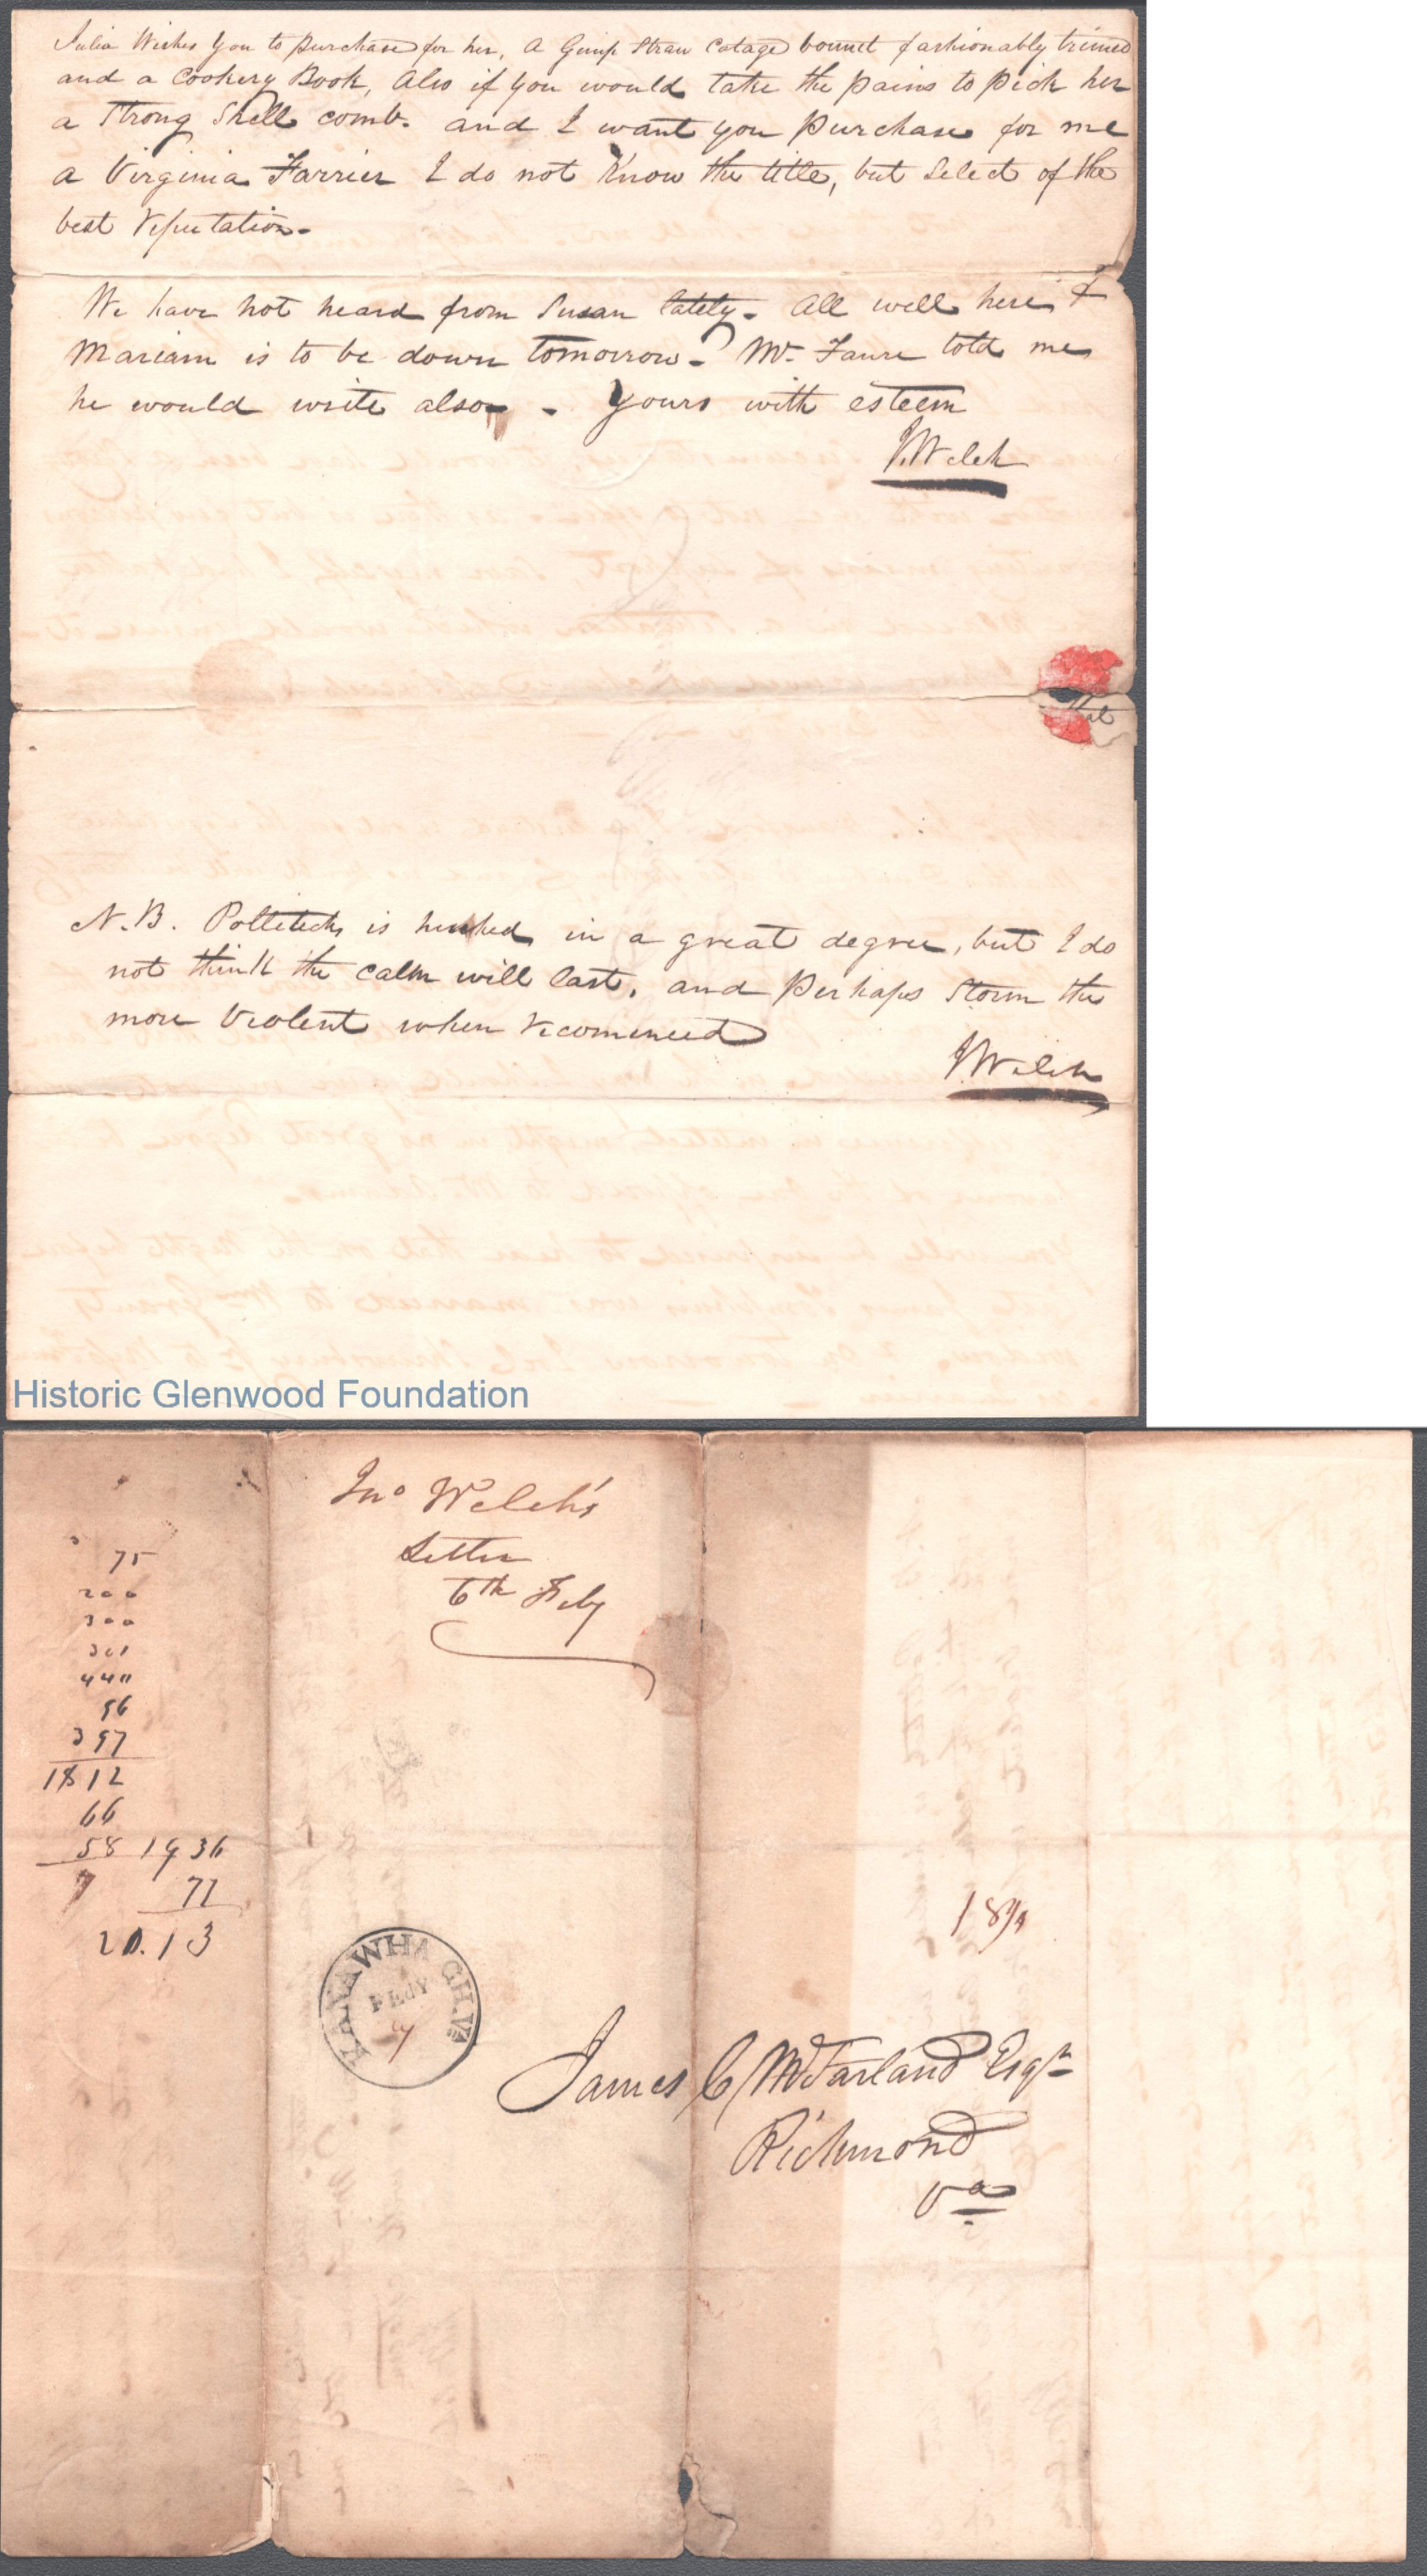 Julia Wishes You to purchase for her, A Gimp Straw Catage bonnet fashionably trimed
and a Cookery Book, Also if you would take the pains to pick her
a Strong Shell comb. and I want you purchase for me
a Virginia Farrier I do not Know the title, but Select of the
best reputation.
We have not heard from Susan lately. All well here &
Mariam is to be down tomorrow. Mr. Faure told me
he would write also. Yours with esteem
J. Welch
N.B. Polliticks is hushed in a great degree, but I do
not think the calm will last, and perhaps Storm the
more Violent when recomenced
J. Welch
Historic Glenwood Foundation
Jno Welch's
Letter
6th Feby
75
200
300
301
440
96
397
1812
66
58 1936
7 77
20.13
KANAWHA CH. Va
FEBY
7
18 3/4
James C McFarland Esqr
Richmond
Va